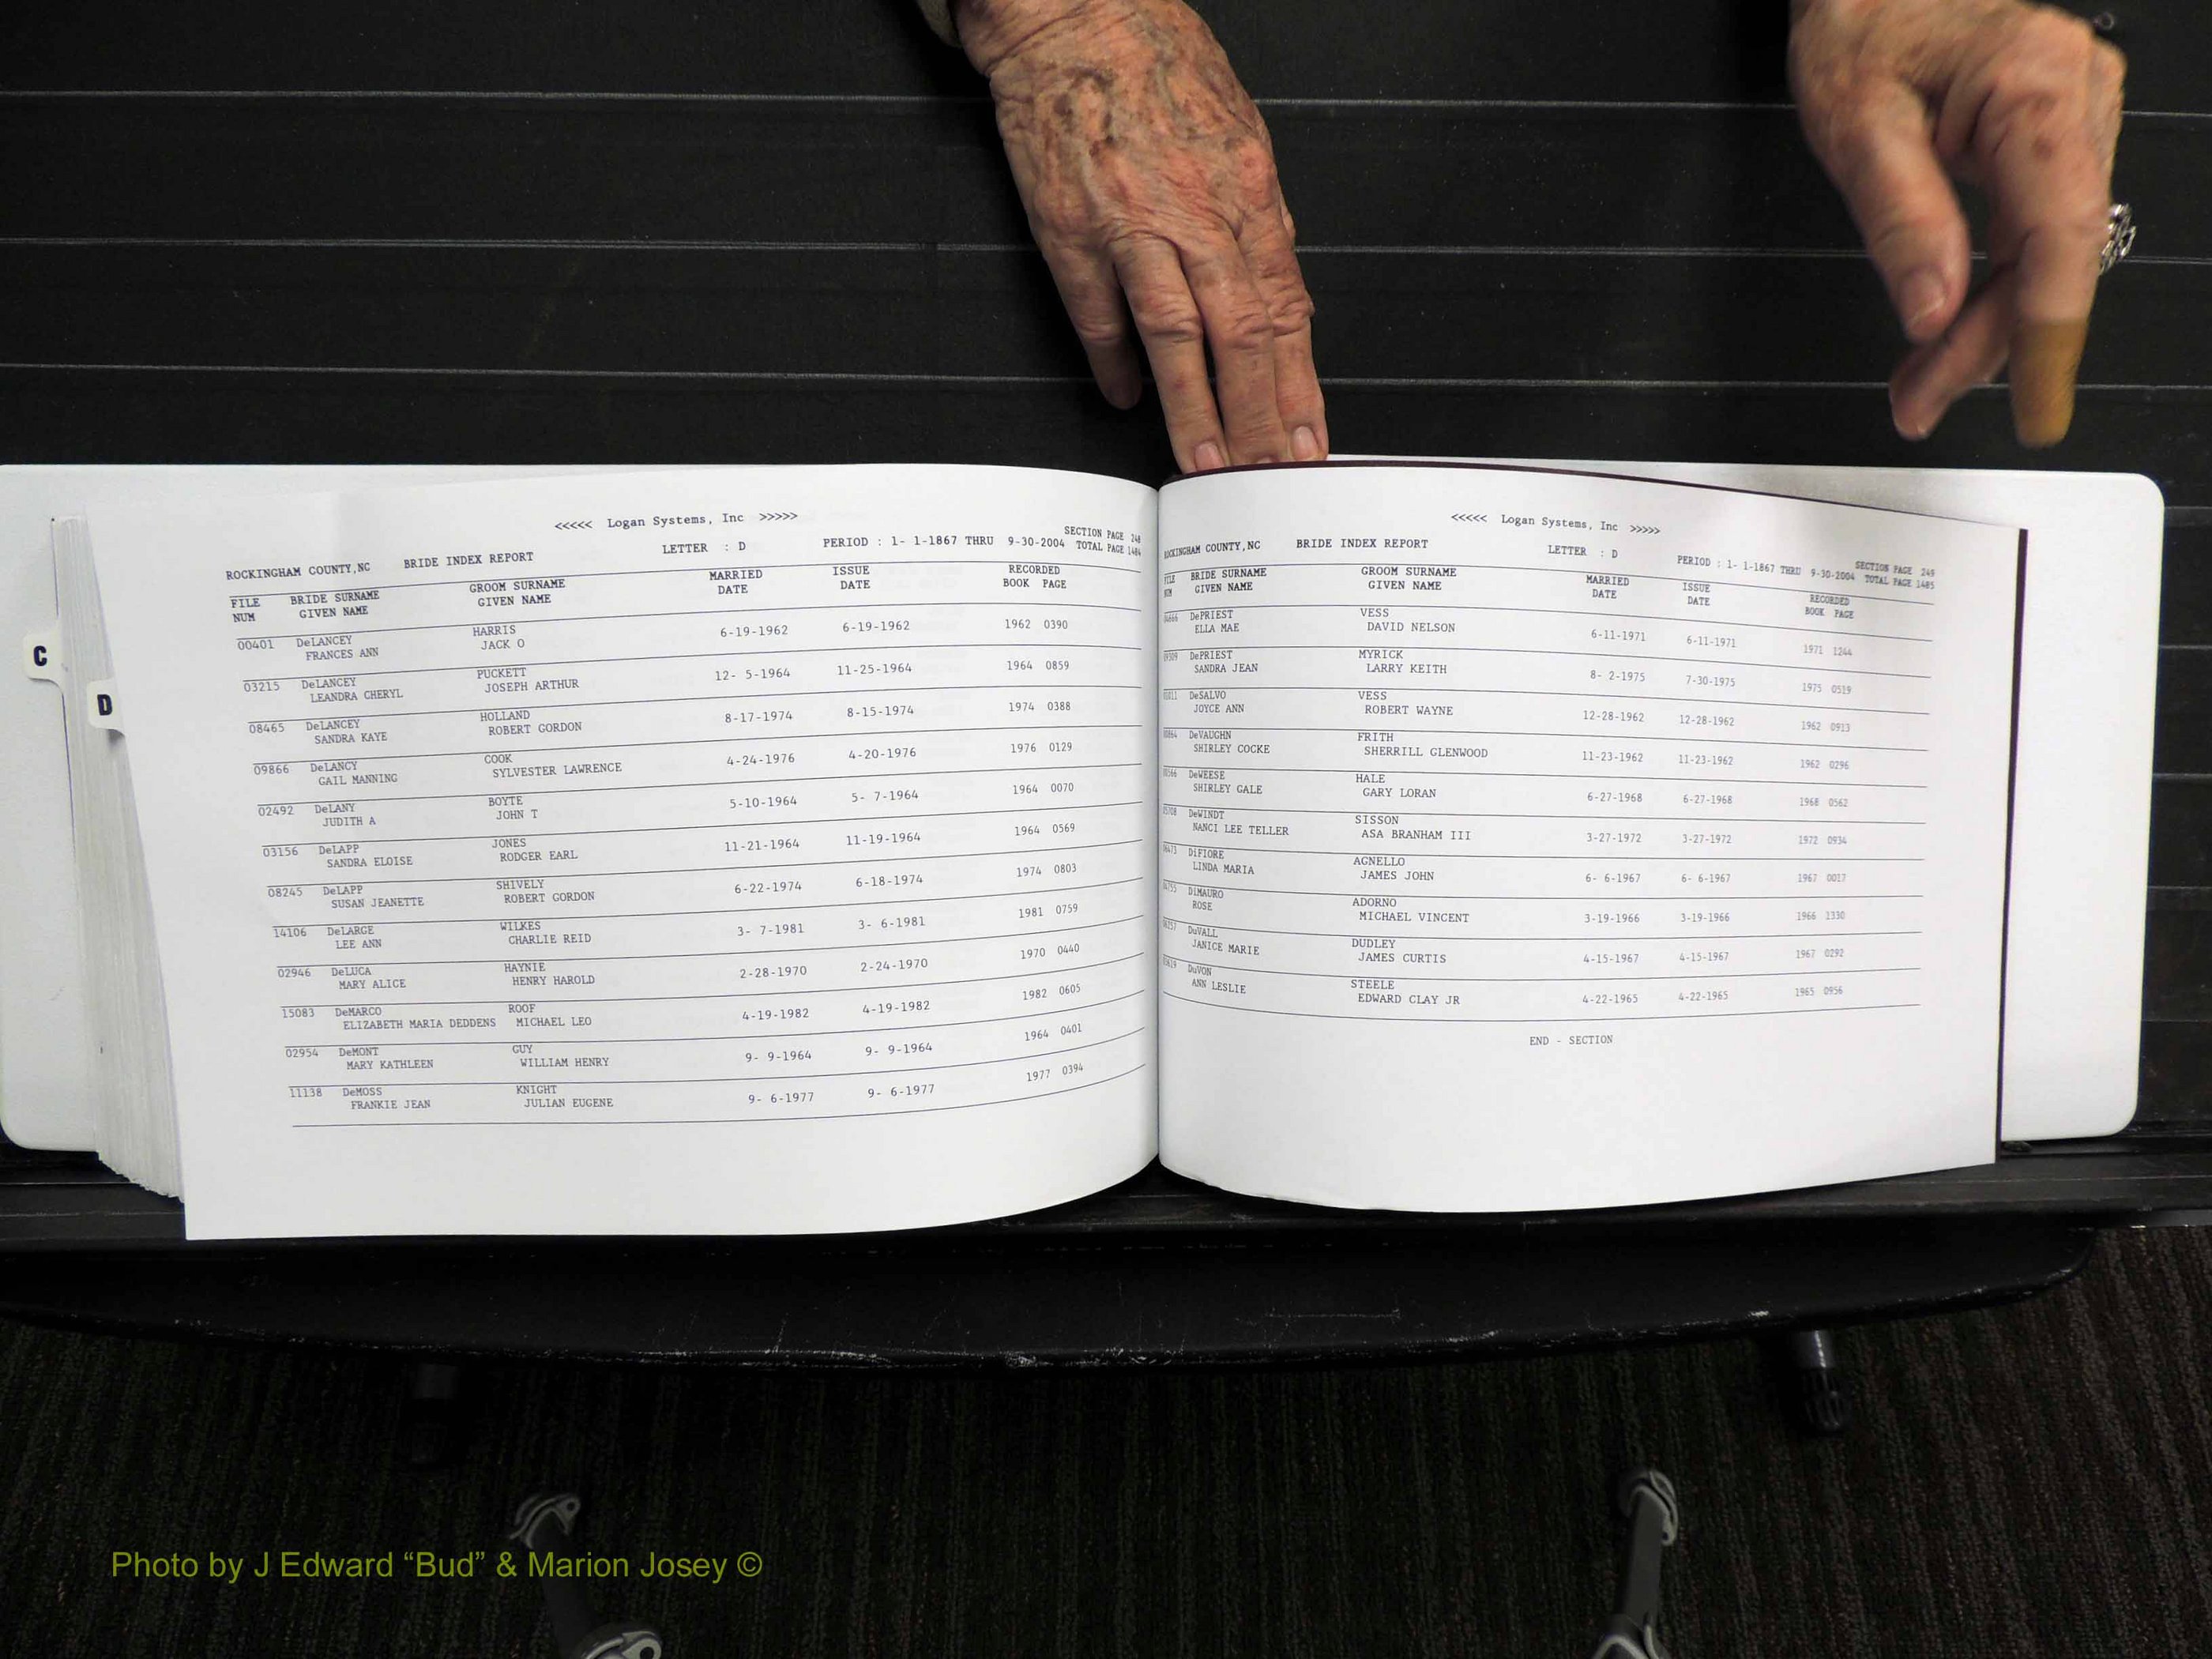 C
D
<<<<< Logan Systems, Inc >>>>>
SECTION PAGE 248
ROCKINGHAM COUNTY,NC BRIDE INDEX REPORT LETTER : D PERIOD : 1- 1-1867 THRU 9-30-2004 TOTAL PAGE 1484
FILE BRIDE SURNAME GROOM SURNAME MARRIED ISSUE RECORDED
NUM GIVEN NAME GIVEN NAME DATE DATE BOOK PAGE
00401 DeLANCEY HARRIS 6-19-1962 6-19-1962 1962 0390
FRANCES ANN JACK O
03215 DeLANCEY PUCKETT 12- 5-1964 11-25-1964 1964 0859
LEANDRA CHERYL JOSEPH ARTHUR
08465 DeLANCEY HOLLAND 8-17-1974 8-15-1974 1974 0388
SANDRA KAYE ROBERT GORDON
09866 DeLANCY COOK 4-24-1976 4-20-1976 1976 0129
GAIL MANNING SYLVESTER LAWRENCE
02492 DeLANY BOYTE 5-10-1964 5- 7-1964 1964 0070
JUDITH A JOHN T
03156 DeLAPP JONES 11-21-1964 11-19-1964 1964 0569
SANDRA ELOISE RODGER EARL
08245 DeLAPP SHIVELY 6-22-1974 6-18-1974 1974 0803
SUSAN JEANETTE ROBERT GORDON
14106 DeLARGE WILKES 3- 7-1981 3- 6-1981 1981 0759
LEE ANN CHARLIE REID
02946 DeLUCA HAYNIE 2-28-1970 2-24-1970 1970 0440
MARY ALICE HENRY HAROLD
15083 DeMARCO ROOF 4-19-1982 4-19-1982 1982 0605
ELIZABETH MARIA DEDDENS MICHAEL LEO
02954 DeMONT GUY 9- 9-1964 9- 9-1964 1964 0401
MARY KATHLEEN WILLIAM HENRY
11138 DeMOSS KNIGHT 9- 6-1977 9- 6-1977 1977 0394
FRANKIE JEAN JULIAN EUGENE
<<<<< Logan Systems, Inc >>>>>
SECTION PAGE 249
ROCKINGHAM COUNTY,NC BRIDE INDEX REPORT LETTER : D PERIOD : 1- 1-1867 THRU 9-30-2004 TOTAL PAGE 1485
FILE BRIDE SURNAME GROOM SURNAME MARRIED ISSUE RECORDED
NUM GIVEN NAME GIVEN NAME DATE DATE BOOK PAGE
DePRIEST VESS 6-11-1971 6-11-1971 1971 1244
ELLA MAE DAVID NELSON
DePRIEST MYRICK 8- 2-1975 7-30-1975 1975 0519
SANDRA JEAN LARRY KEITH
DeSALVO VESS 12-28-1962 12-28-1962 1962 0913
JOYCE ANN ROBERT WAYNE
DeVAUGHN FRITH 11-23-1962 11-23-1962 1962 0296
SHIRLEY COCKE SHERRILL GLENWOOD
DeWEESE HALE 6-27-1968 6-27-1968 1968 0562
SHIRLEY GALE GARY LORAN
DeWINDT SISSON 3-27-1972 3-27-1972 1972 0934
NANCI LEE TELLER ASA BRANHAM III
DiFIORE AGNELLO 6- 6-1967 6- 6-1967 1967 0017
LINDA MARIA JAMES JOHN
DiMAURO ADORNO 3-19-1966 3-19-1966 1966 1330
ROSE MICHAEL VINCENT
DuVALL DUDLEY 4-15-1967 4-15-1967 1967 0292
JANICE MARIE JAMES CURTIS
DuVON STEELE 4-22-1965 4-22-1965 1965 0956
ANN LESLIE EDWARD CLAY JR
END - SECTION
Photo by J Edward “Bud” & Marion Josey ©